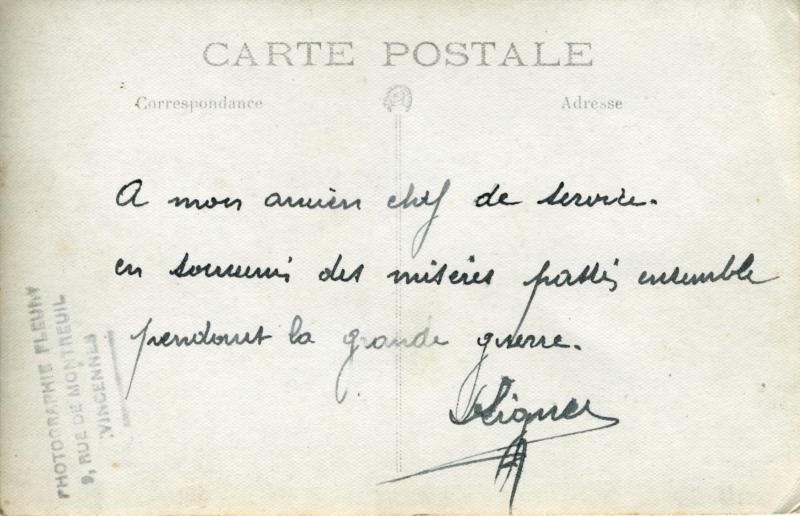 CARTE POSTALE
Correspondance
Adresse
A mon ancien chef de service.
en souvenir des misères passés ensemble
pendant la grande guerre.
PHOTOGRAPHIE FLEURY
9, RUE DE MONTREUIL
VINCENNES